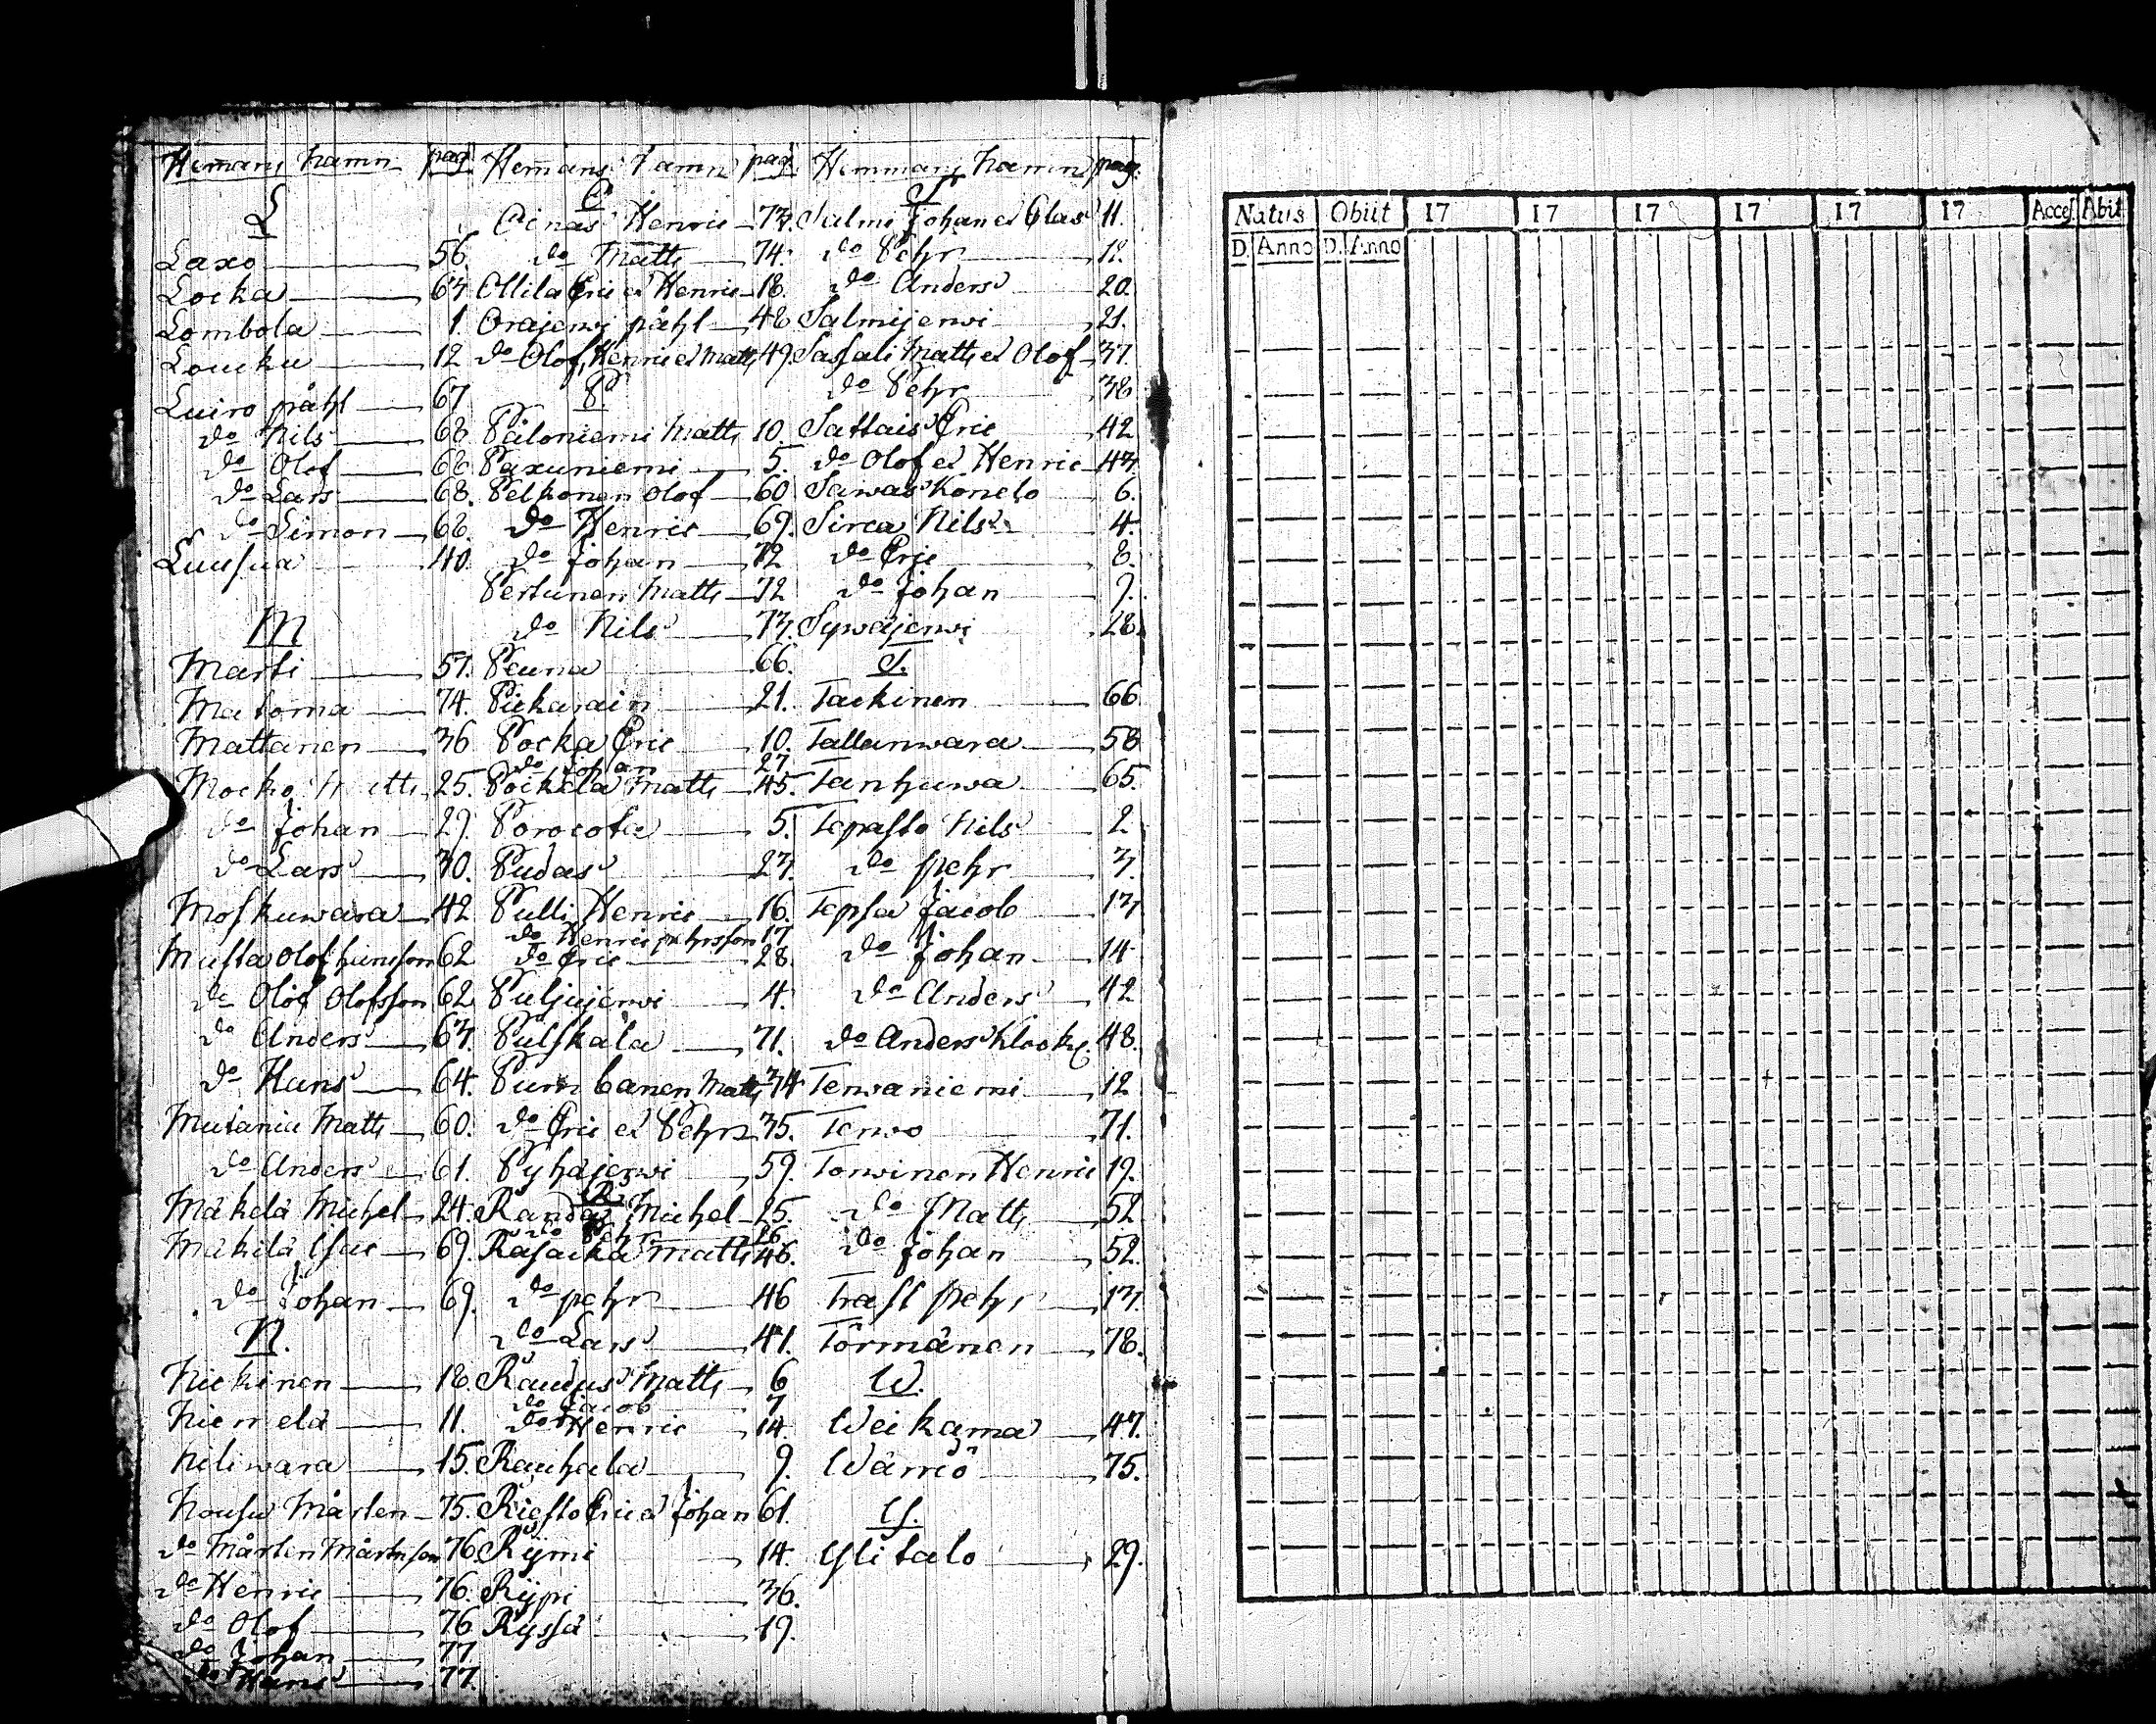 Hemmans namn pag.
L
Laxo 56.
Locka 63.
Lombola 1.
Loucku 12
Luiro påhl 67
do Nils 68.
do Olof 68.
do Lars 68.
do Simon 68.
Luusua 40.
M
Marti 57.
Matoma 74.
Mattanen 36
Mocko Matts 25.
do Johan 29.
do Lars 30.
Moskuwara 42
Musta Olof hansson 62
do Olof Olofsson 62
do Anders 63.
do Hans 64.
Mutania Matts 60.
do Anders 61.
Mäkelä Michel 24.
Mäkelä Isac 69.
do Johan 69.
N.
Nickinen 18.
Niemelä 11.
Niliwara 15.
Nousu Mårten 75.
do Mårten Mårtensson 76.
do Henric 76.
do Olof 76
do Johan 77
do Hans 77.
Hemans namn pag.
O
Oinas Henric 73.
do Matts 74.
Ollila Eric et Henric 18.
Orajerwi påhl 48
do Olof, Henric et Matts 49.
P
Paloniemi Matts 10.
Paxuniemi 5.
Pelkonen Olof 60
do Henric 69.
do Johan 72
Pertunen Matts 72
do Nils 73.
Peuna 66.
Pickarain 21.
Pocka Eric 10.
do Johan 27
Pockela Matts 45.
Porocota 5.
Pudas 23.
Pulli Henric 16.
do Henric pehrsson 17
do Eric 28.
Puljujerwi 4.
Pulskala 71.
Pumbanen Matts 34
do Eric et Pehr 35.
Pyhäjerwi 59.
R
Randa Michel 25.
do Pehr 26.
Rasacka Matts 46.
do pehr 46
do Lars 41.
Raudus Matts 6
do Jacob 7
do Henric 14.
Rauhala 9.
Riesto Eric et Johan 61.
Rymi 14.
Rypi 36.
Ryssä 19.
Hemmans namn pag.
S
Salmi Johan et Clas 11.
do Pehr 12.
do Anders 20.
Salmijerwi 21.
Sassali Matts et Olof 37.
do Pehr 38
Sattais Eric 42
do Olof et Henric 43.
Sawas Konelo 6.
Sirca Nils 4.
do Eric 8.
do Johan 9.
Sywäjerwi 28.
T.
Tackinen 66
Tallunwara 58
Tanhuwa 65.
Tepasto Nils 2
do pehr 3.
Tepsa Jacob 13
do Johan 14
do Anders 42
do Anders Klock. 48.
Terwaniemi 12
Terwo 71.
Torwinen Henric 19.
do Matts 52
do Johan 52.
Trast pehr 13.
Törmänen 78.
W.
Weikama 47.
Wärriö 75.
Y.
Ylitalo 29.
Natus Obiit 17 17 17 17 17 17 Acces. Abit
D. Anno D. Anno